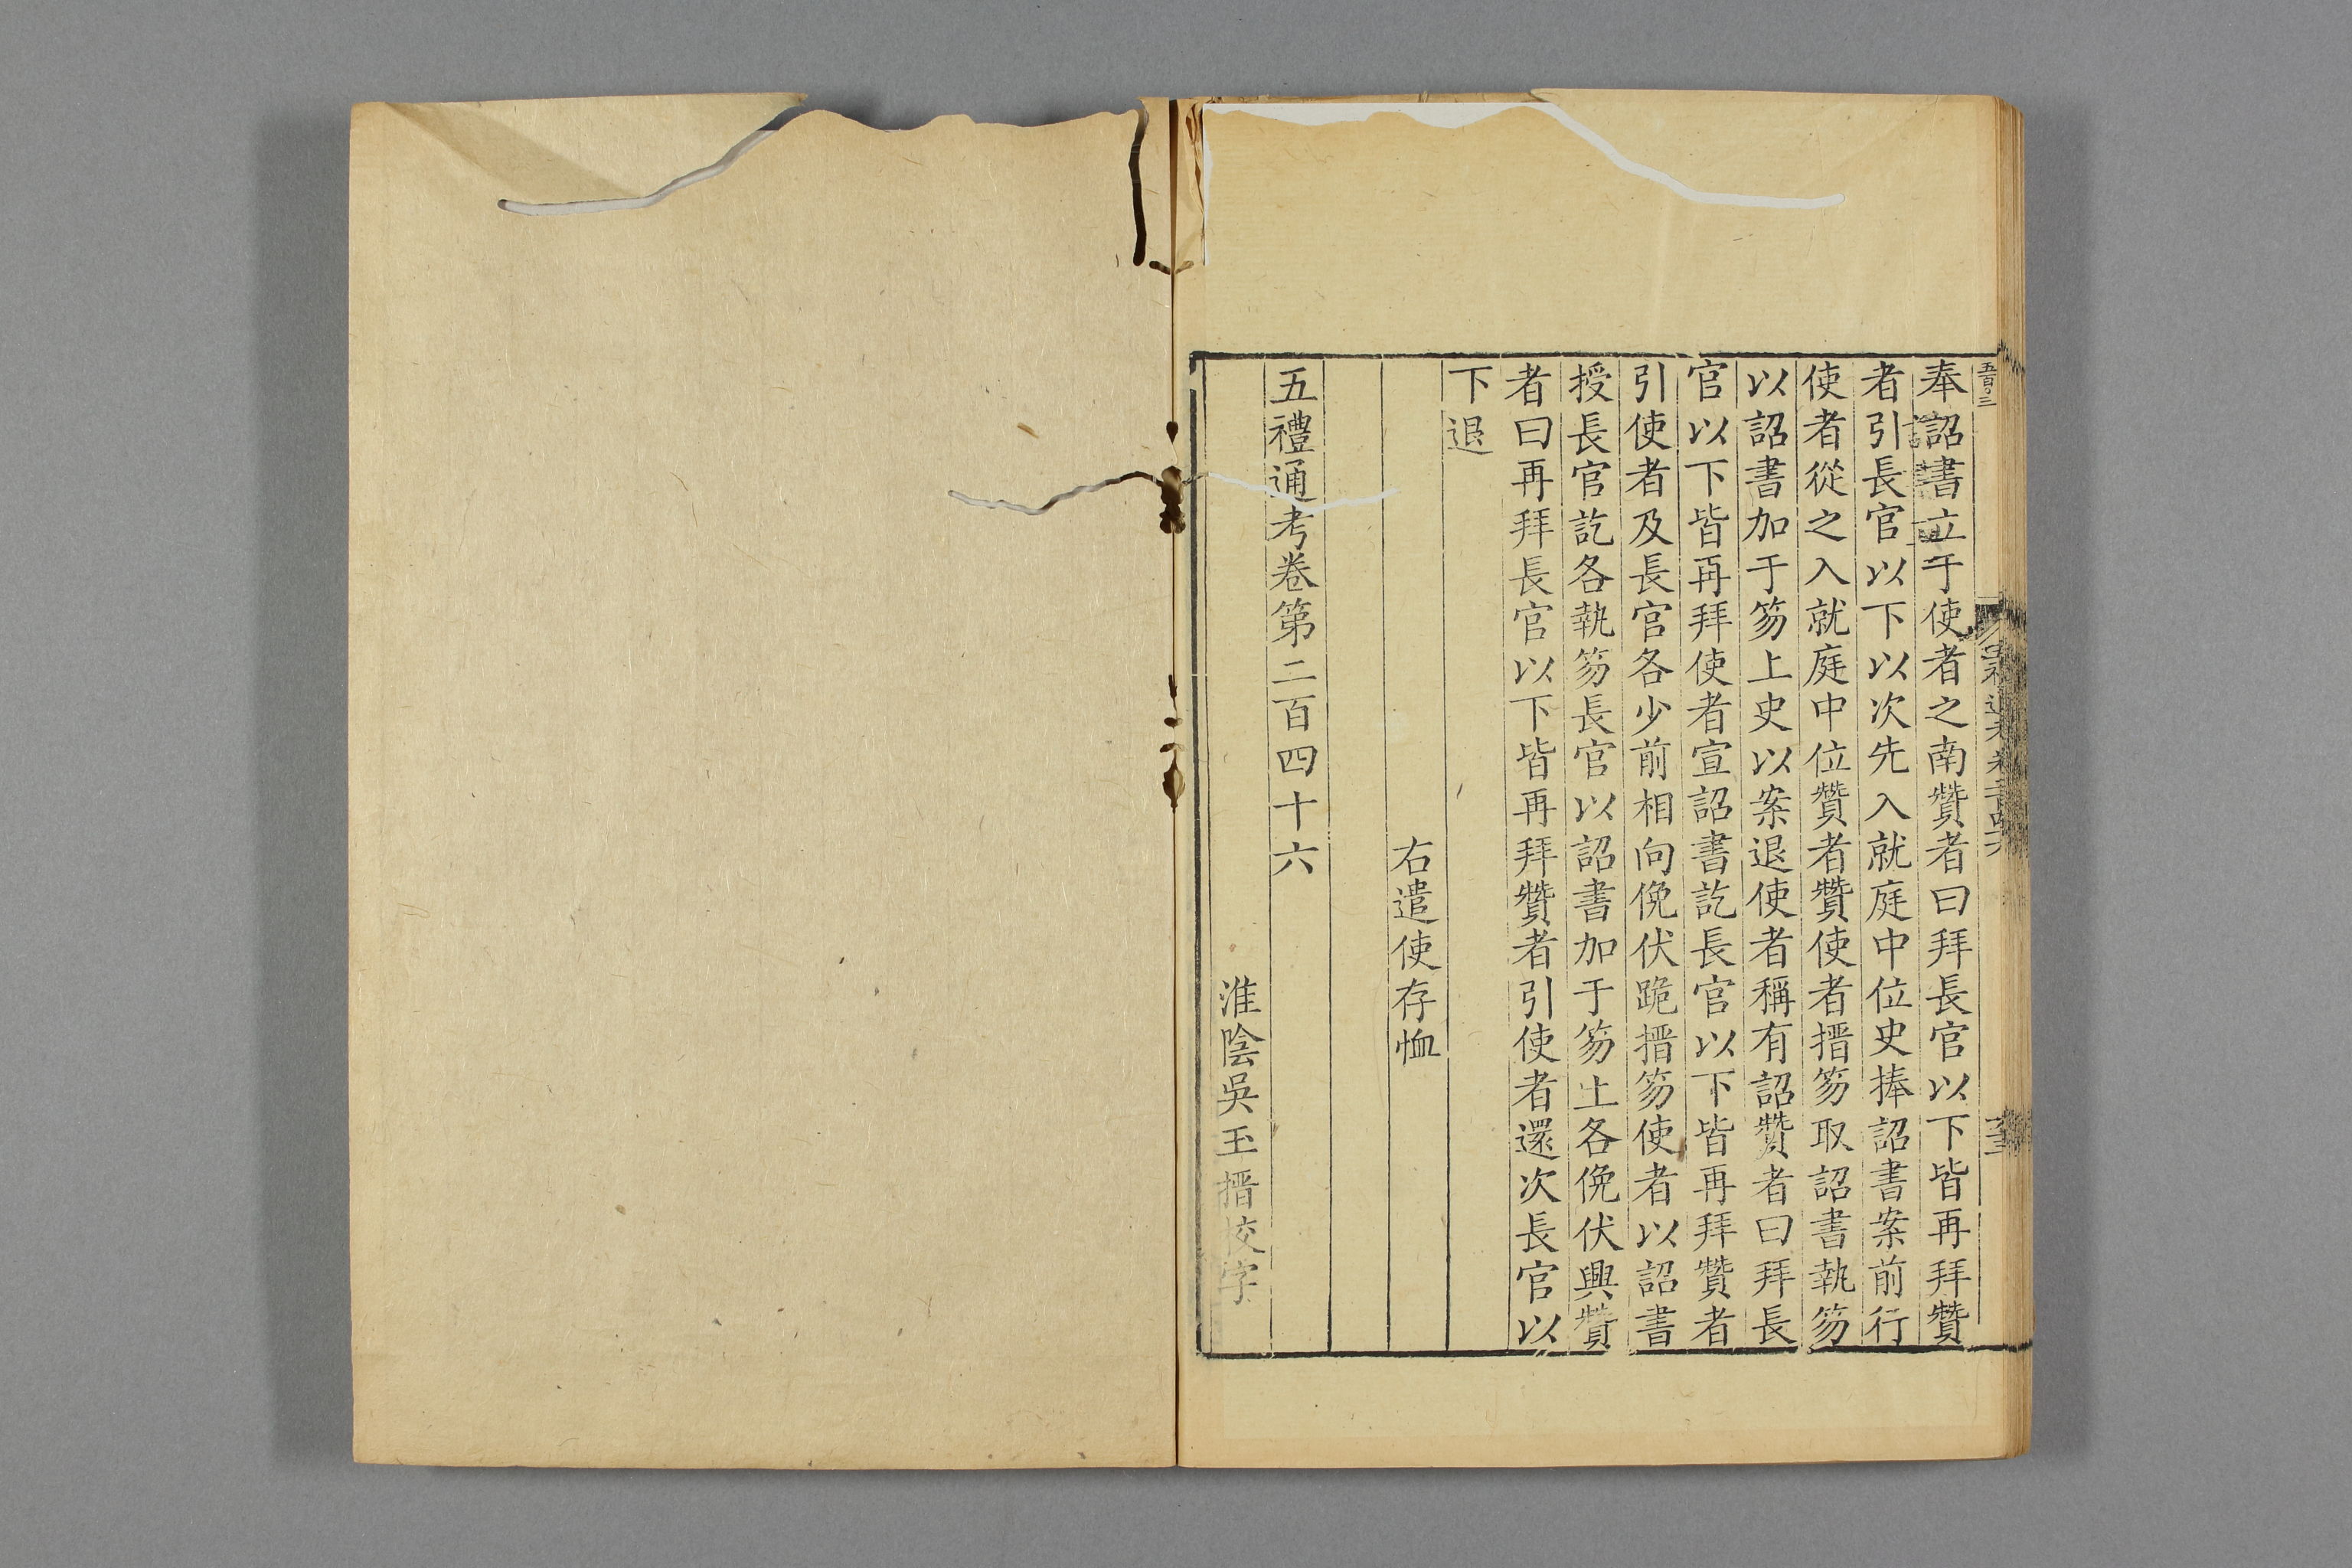 五百〇三
奉詔書立于使者之南贊者曰拜長官以下皆再拜贊
者引長官以下以次先入就庭中位史捧詔書案前行
使者從之入就庭中位贊者贊使者搢笏取詔書執笏
以詔書加于笏上史以案退使者稱有詔贊者曰拜長
官以下皆再拜使者宣詔書訖長官以下皆再拜贊者
引使者及長官各少前相向俛伏跪搢笏使者以詔書
授長官訖各執笏長官以詔書加于笏上各俛伏興贊
者曰再拜長官以下皆再拜贊者引使者還次長官以
下退
右遣使存恤
五禮通考卷第二百四十六
淮陰吳玉搢校字